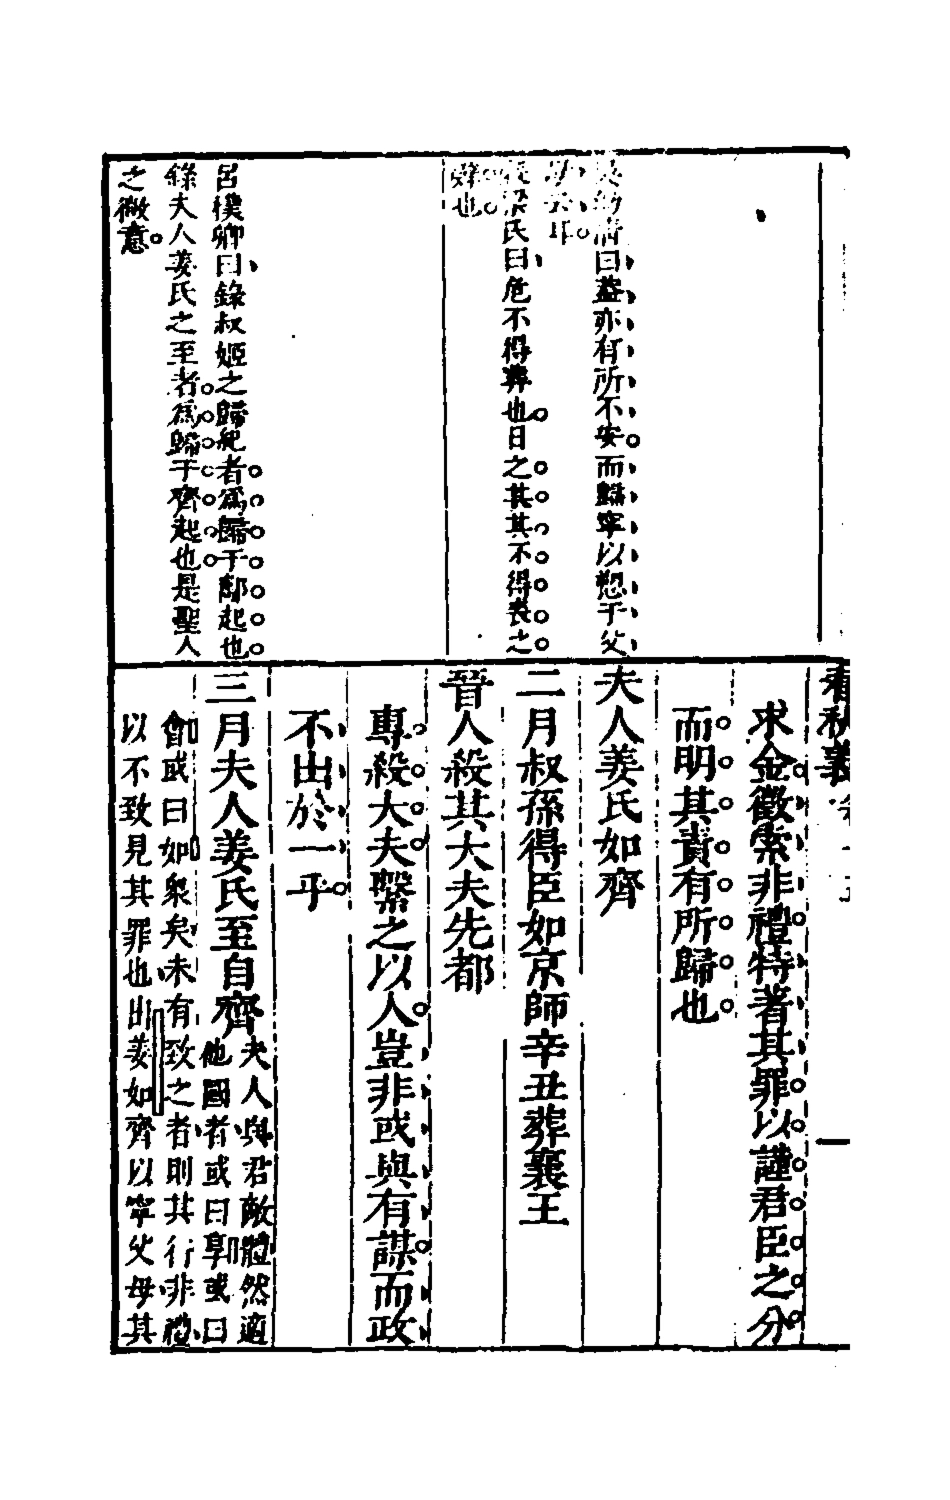 清曰蓋亦有所不安而歸寧以愬于父
耳
梁氏曰危不得葬也日之甚其不得喪之
辭也
呂樸卿曰錄叔姬之歸紀者為歸于酅起也
錄夫人姜氏之至者為歸于齊起也是聖人
之微意
春秋義
一
求金徵索非禮特著其罪以謹君臣之分
而明其責有所歸也
夫人姜氏如齊
二月叔孫得臣如京師辛丑葬襄王
晉人殺其大夫先都
專殺大夫繫之以人豈非或與有謀而政
不出於一乎
三月夫人姜氏至自齊
夫人與君敵體然適
他國者或曰享或曰
會或曰如衆矣未有致之者則其行非禮
以不致見其罪也出姜如齊以寧父母其